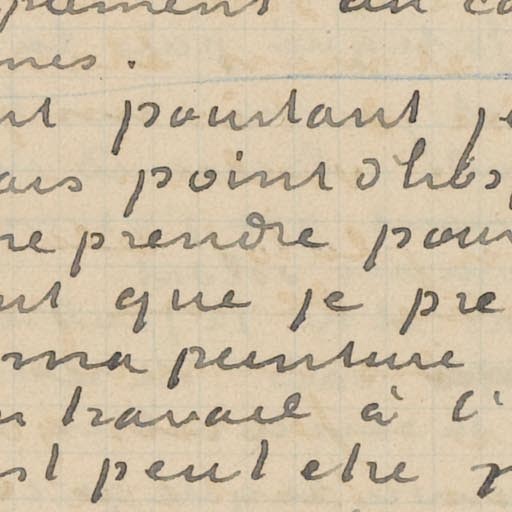 au
nes.
pourtant je
point d'hos
reprendre pour
que je pre
ma peinture
travail à l'
st peut etre